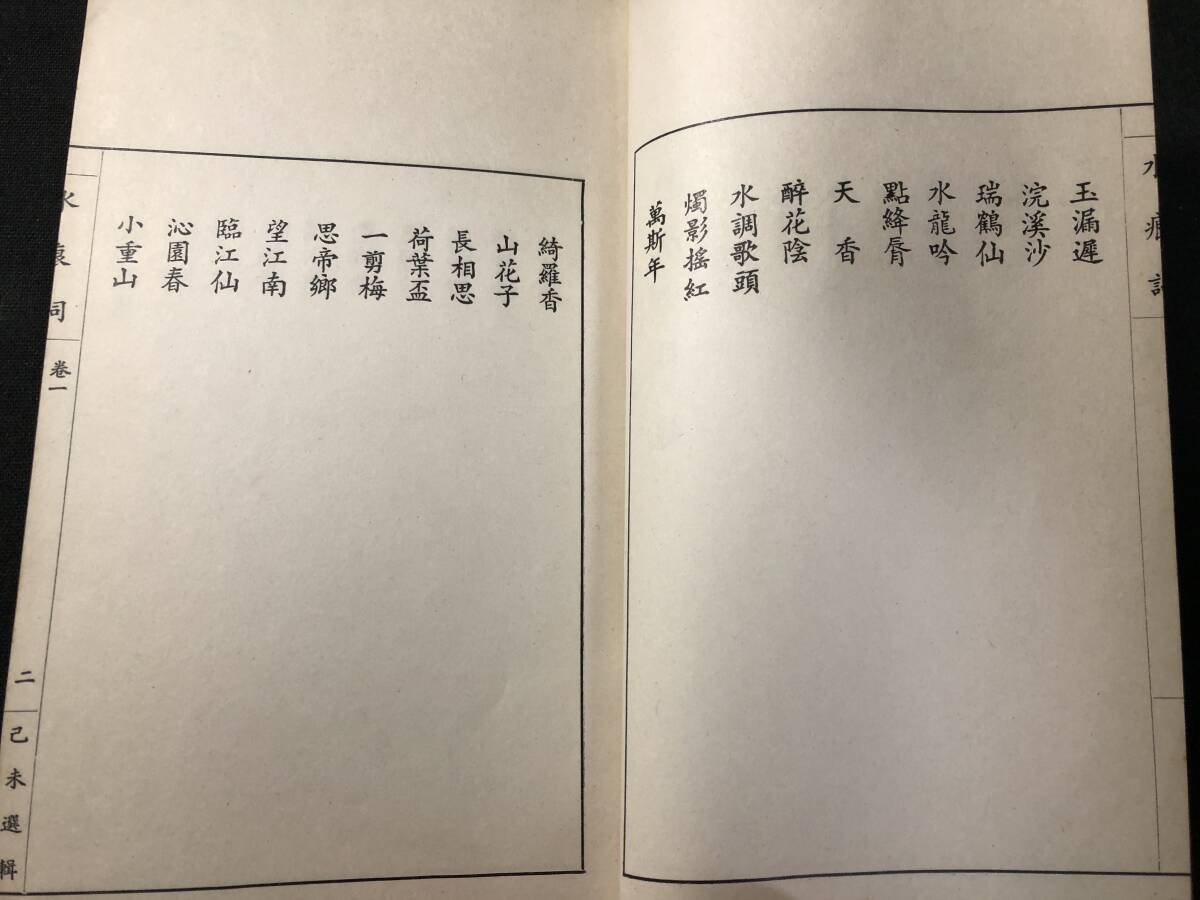 玉漏遲
浣溪沙
瑞鶴仙
水龍吟
點絳脣
天香
醉花陰
水調歌頭
燭影搖紅
萬斯年
綺羅香
山花子
長相思
荷葉盃
一剪梅
思帝鄉
望江南
臨江仙
沁園春
小重山
水痕詞
卷一
二
己未選輯